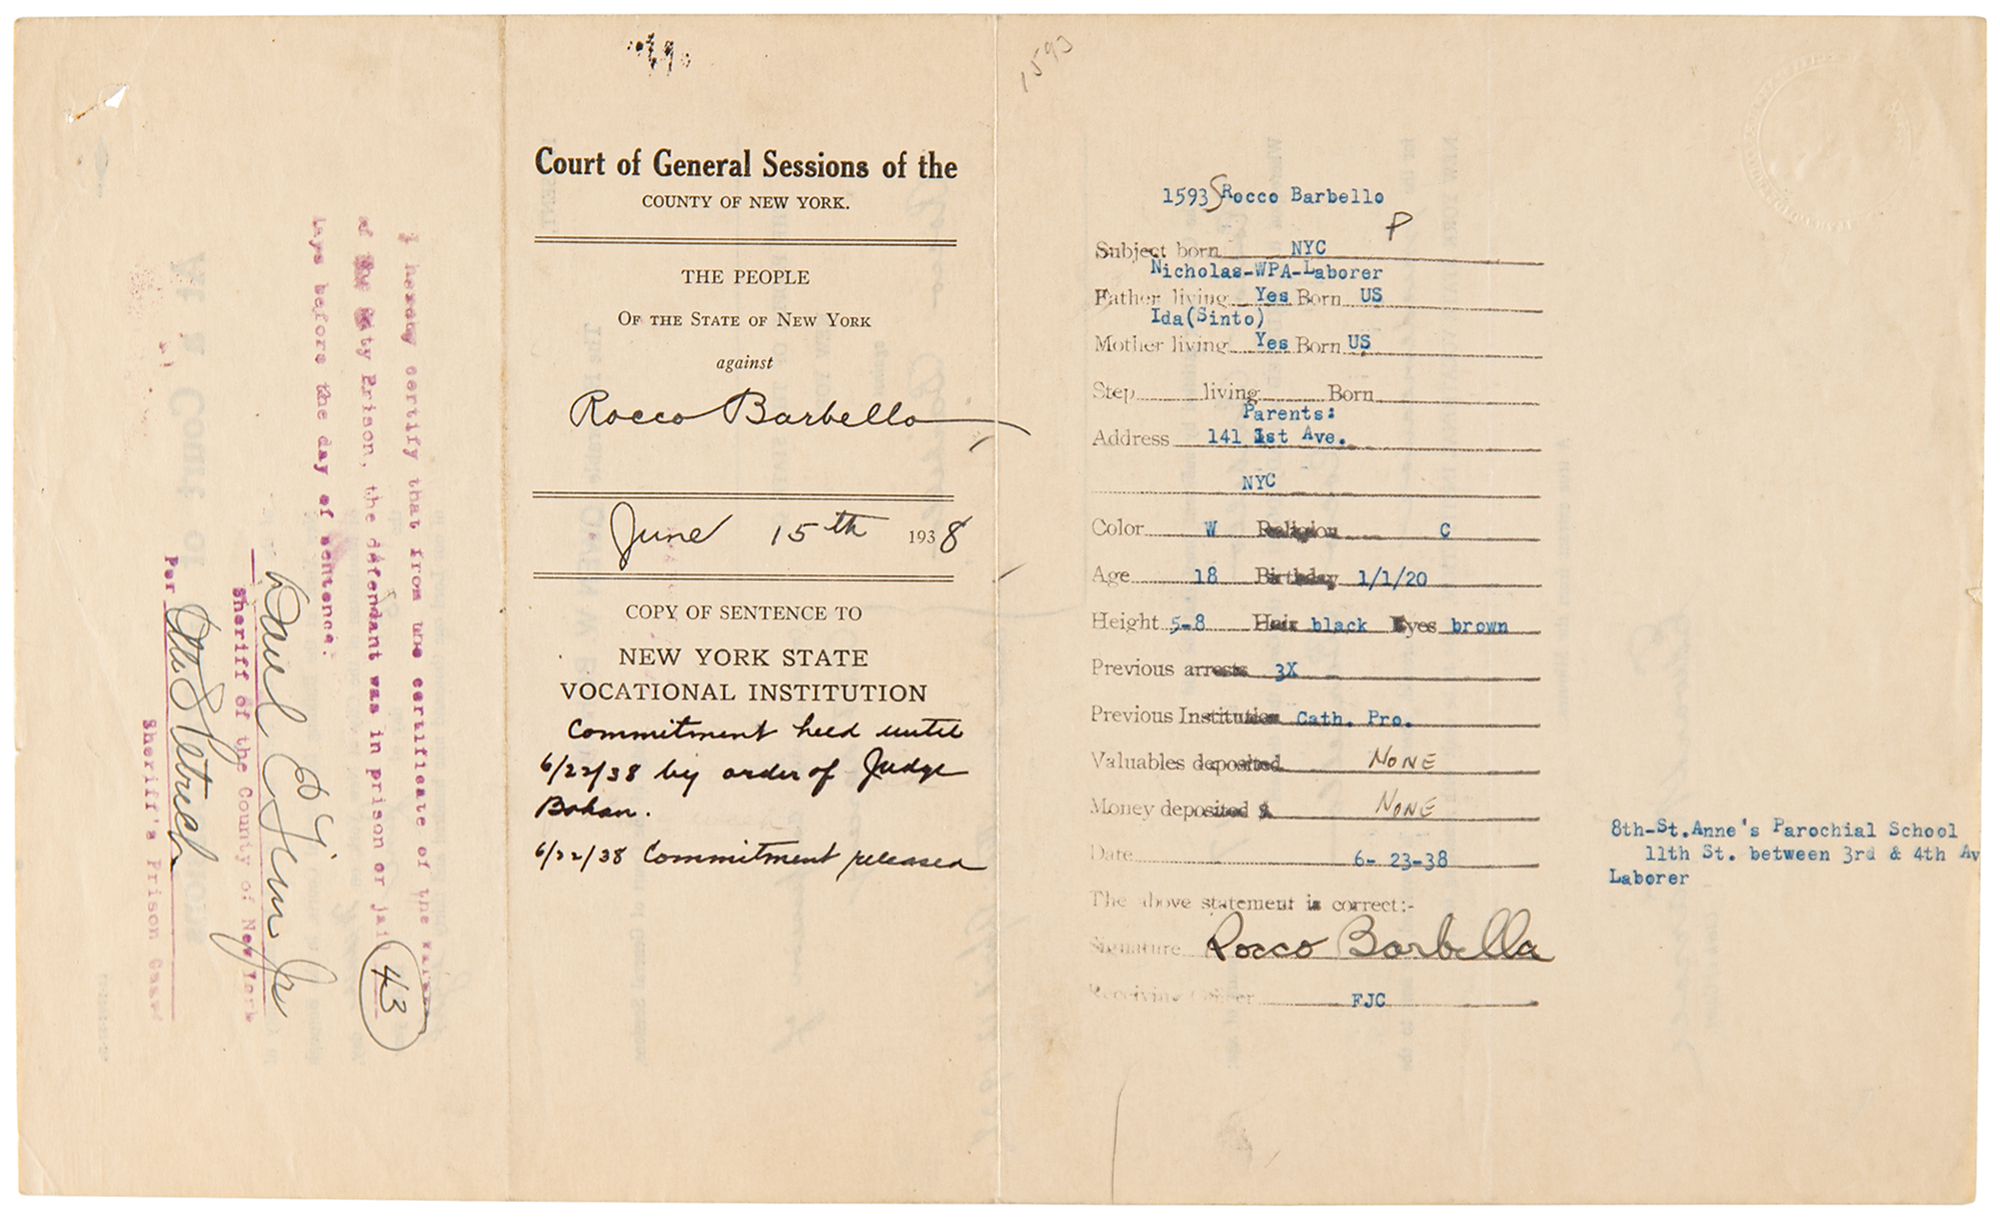 I hereby certify that from the certificate of the
of the City Prison, the defendant was in prison or jail
43
days before the day of sentence.
Sheriff of the County of New York
Per
Sheriff's Prison Guard
Court of General Sessions of the
COUNTY OF NEW YORK.
THE PEOPLE
OF THE STATE OF NEW YORK
against
Rocco Barbello
June 15th 1938
COPY OF SENTENCE TO
NEW YORK STATE
VOCATIONAL INSTITUTION
Commitment held until
6/22/38 by order of Judge
Bohan.
6/22/38 Commitment released
1593
1593 S Rocco Barbello
P
Subject born NYC
Nicholas-WPA-Laborer
Father living Yes Born US
Ida(Sinto)
Mother living Yes Born US
Step living Born
Parents:
Address 141 1st Ave.
NYC
Color W Religion C
Age 18 Birthday 1/1/20
Height 5-8 Hair black Eyes brown
Previous arrests 3X
Previous Institution Cath. Pro.
Valuables deposited NONE
Money deposited $ NONE
Date 6- 23-38
The above statement is correct:-
Signature Rocco Barbella
Receiving Officer FJC
8th-St.Anne's Parochial School
11th St. between 3rd & 4th Av
Laborer